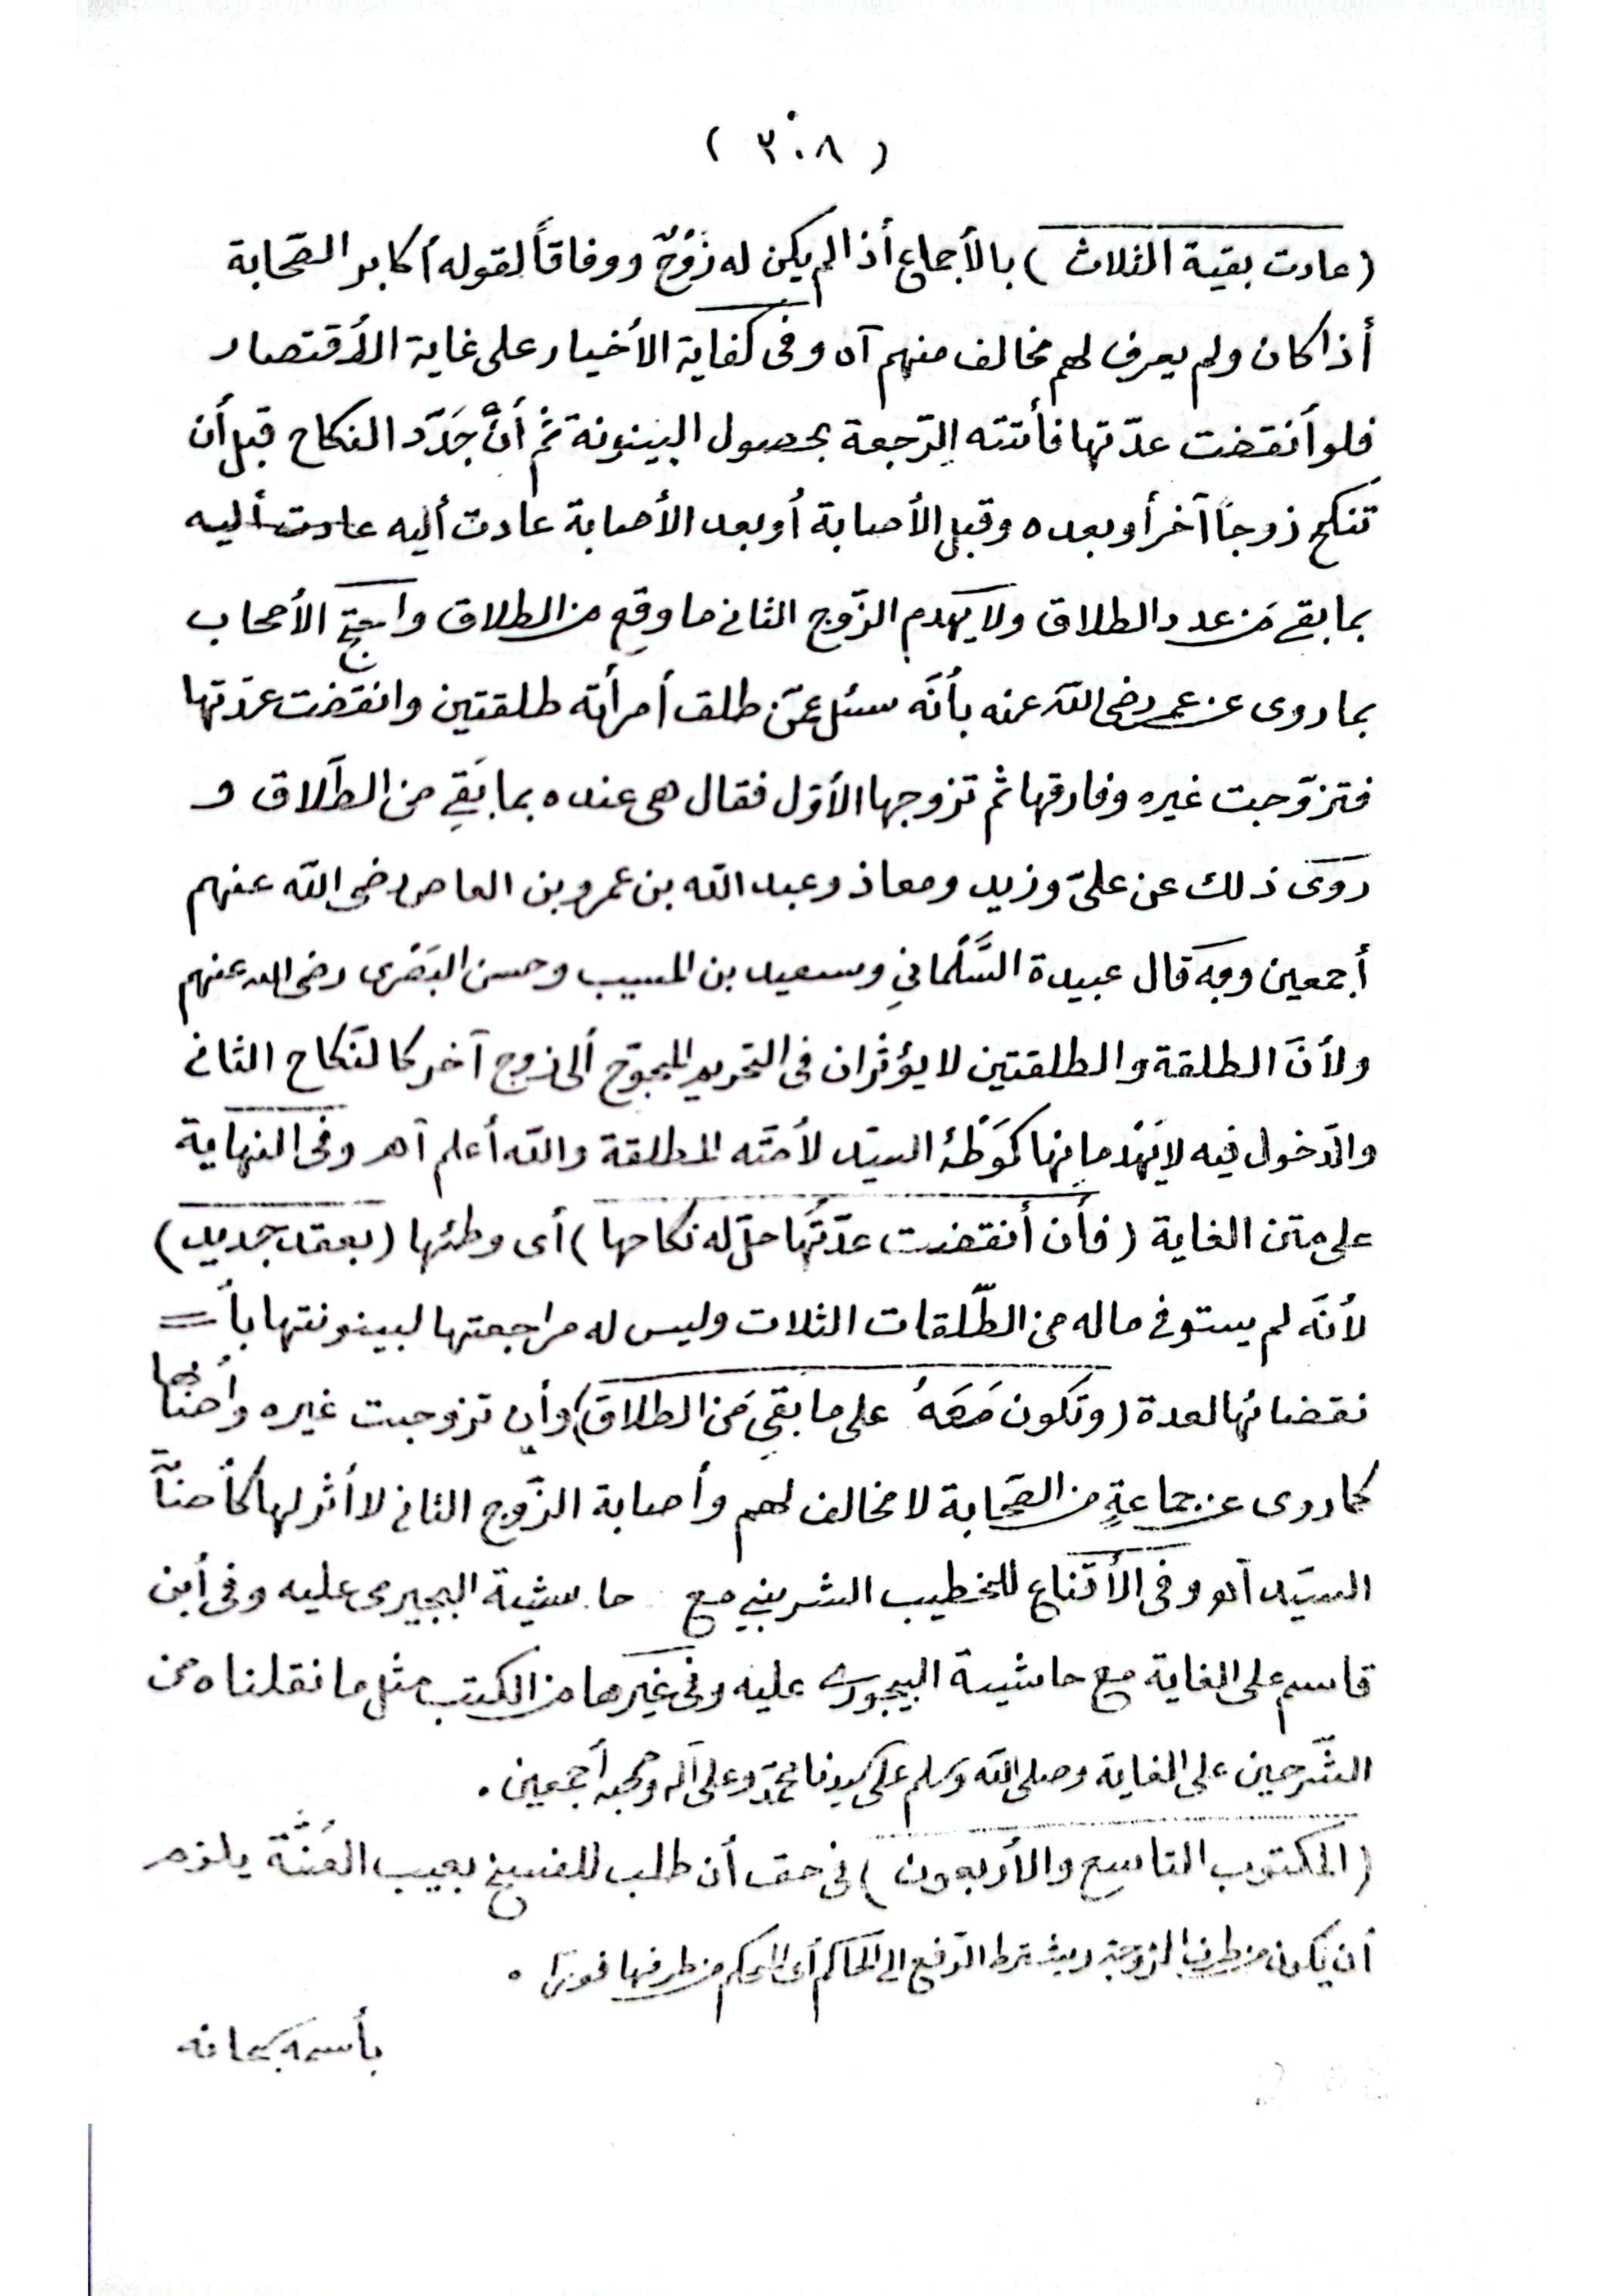 ( ٣٠٨ )
(عادت بقية الثلاث) بالأجماع أذا لم يكن له زَوْجٌ ووفاقاً لقوله أكابر الصّحابة
أذا كان ولم يعرف لهم مخالف منهم آه وفى كفاية الأخيار على غاية الأقتصار
فلو أنقضت عدّتها فأتته الرّجعة بحصول البينونة ثمّ أنْ جَدّد النكاح قبل أن
تنكح زوجاً آخر أو بعده وقبل الأصابة أو بعد الأصابة عادت أليه عادت أليه
بما بقى من عدد الطلاق ولا يهدم الزّوج الثانى ما وقع من الطلاق واحتج الأصحاب
بما روى عن عمر رضى الله عنه بأنّه سئل عمّن طلق أمرأته طلقتين وانقضت عدّتها
فتزوّجت غيره وفارقها ثم تزوجها الأوّل فقال هى عنده بما بَقِي من الطّلاق و
روَى ذلك عن علىّ وزيد ومعاذ وعبد الله بن عمرو بن العاص رضى الله عنهم
أجمعين وبه قال عبيدة السَّلْماني وسعيد بن المسيب وحسن البَصْرى رضى الله عنهم
ولأنّ الطلقة والطلقتين لا يؤثران فى التحريم المحوّج ألى زوج آخر كالنّكاح الثانى
والدّخول فيه لا يَهْدمانها كَوَطْئ السيّد لأمَته المطلقة والله أعلم آهـ وفى النهاية
على متن الغاية (فأن أنقضت عدّتُها حلّ له نكاحها) أى وطئها (بعقد جديد)
لأنّه لم يستوفى ماله من الطّلقات الثلاث وليس له مراجعتها لبينونتها بأ =
نقضائها لعدة (وتكون مَعَهُ على ما بَقي مَن الطلاق) وأن تزوجت غيره وأصابها
كما روى عن جماعةٍ من الصّحابة لا مخالف لهم وأصابة الزّوج الثانى لا أثر لها كأصابة
السيّد آهـ وفى الأقناع للخطيب الشربيني مع حاشية البجيرمى عليه وفى أبن
قاسم على الغاية مع حاشية البيجورى عليه وفى غيرها من الكتب مثل ما نقلناه من
الشّرحين على الغاية وصلى الله وسلم على سيدنا محمّد وعلى آله وصحبه أجمعين .
(المكتوب التاسع والأربعون) فى حق أن طلب للفسخ بعيب العُنّة يلزم
أن يكون من طرف الزوجة ويشترط الرّفع الى الحاكم أى المحكم من طرفها فورًا .
بأسمه سبحانه